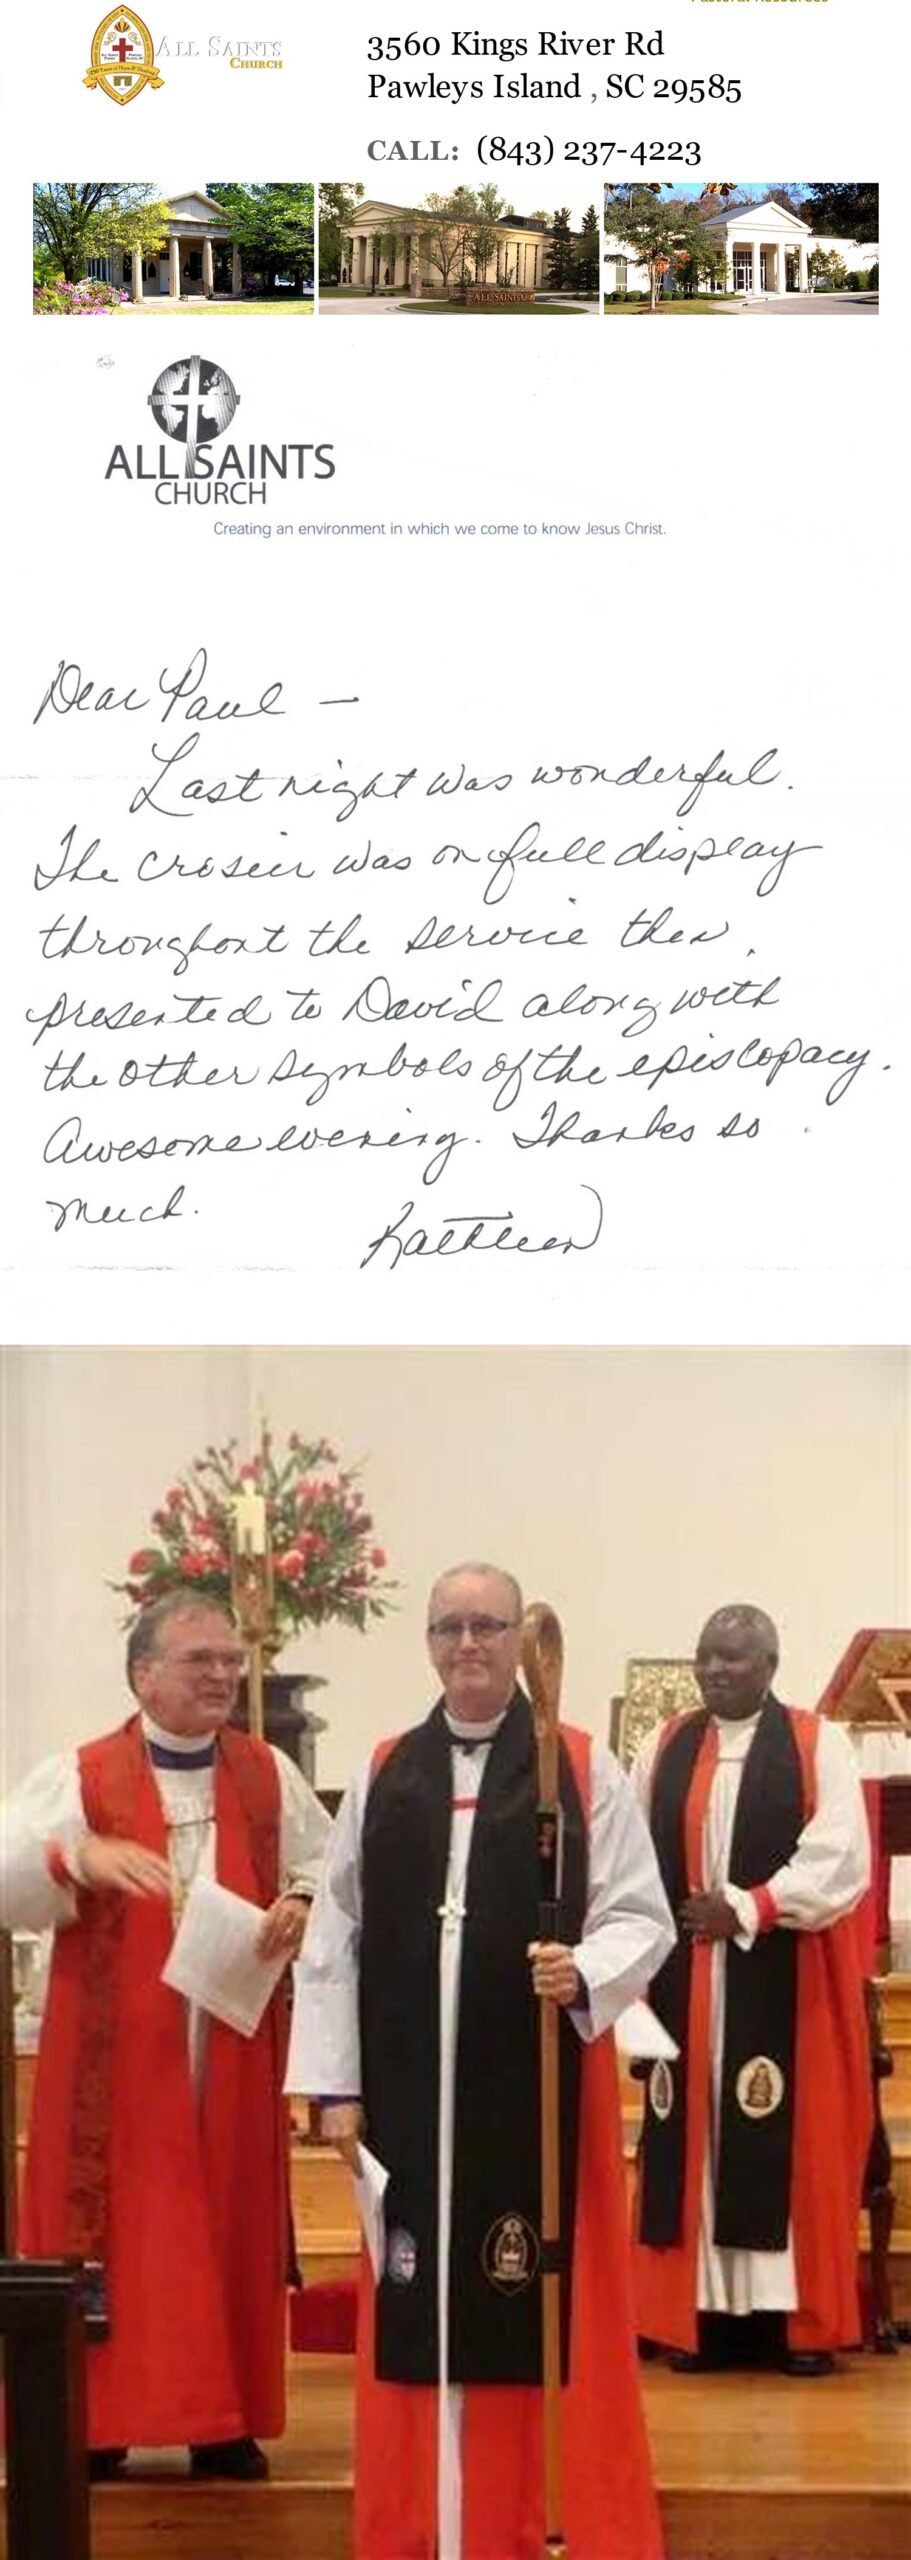 Pastoral Resources
ALL SAINTS
CHURCH
3560 Kings River Rd
Pawleys Island , SC 29585
CALL: (843) 237-4223
ALL SAINTS
ALL SAINTS
CHURCH
Creating an environment in which we come to know Jesus Christ.
Dear Paul —
Last night was wonderful.
The crosier was on full display
throughout the service then
presented to David along with
the other symbols of the episcopacy.
Awesome evening. Thanks so
much.
Kathleen